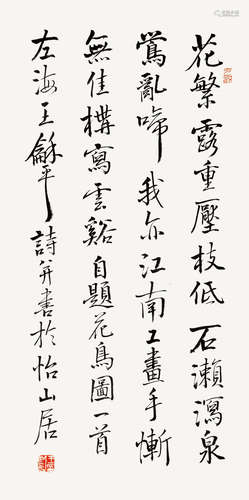 花繁露重壓枝低石瀨瀉泉
鶯亂啼我亦江南工畫手慚
無佳構寫雲谿自題花鳥圖一首
左海王龢平詩并書於怡山居